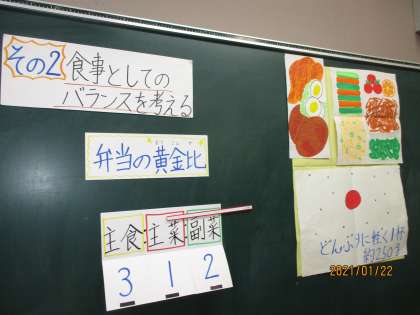 その2
食事としての
バランスを考える
弁当の黄金比
主食 主菜 副菜
3 1 2
どんぶりに軽く1杯
約250g
2021/01/22